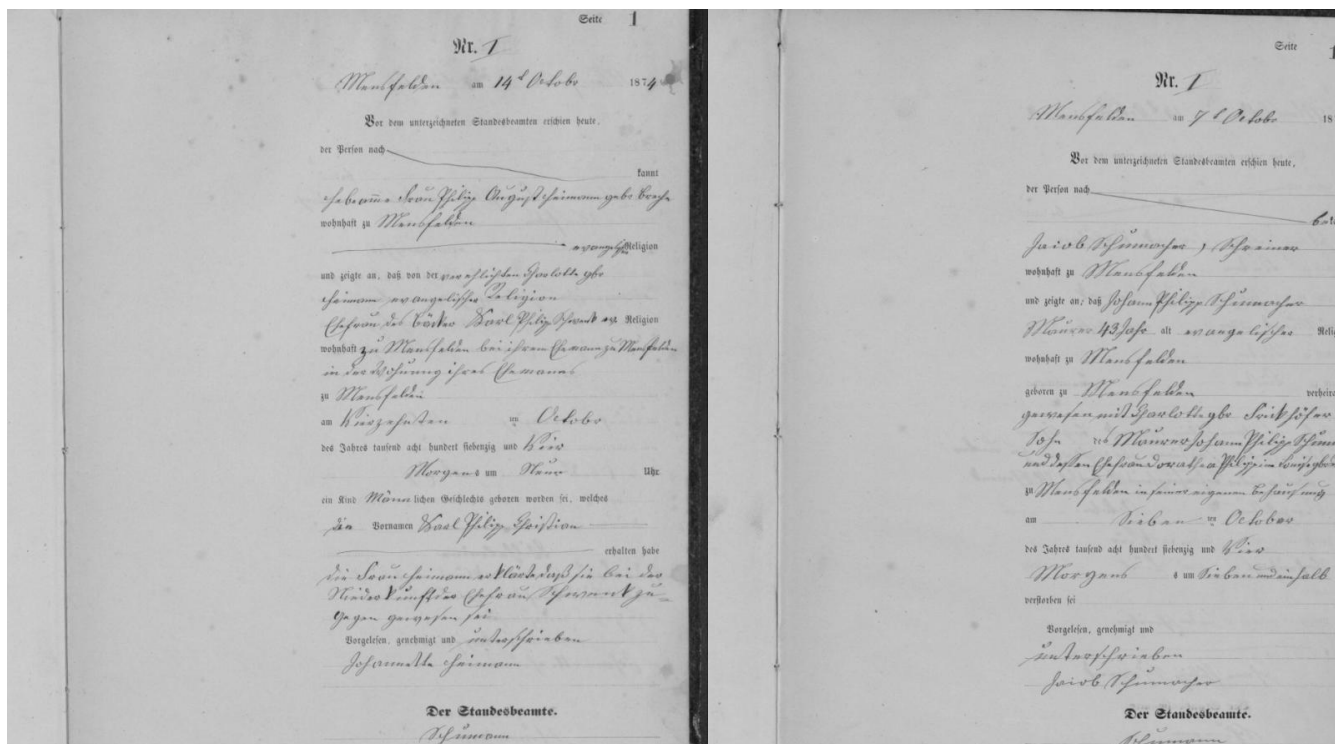 Seite 1
Nr. 1
Mensfelden am 14t Octobr 1874
Vor dem unterzeichneten Standesbeamten erschien heute,
der Person nach
kannt
Hebamme Frau Philipp August Heimann geb.
wohnhaft zu Mensfelden
evangelischer Religion
und zeigte an, daß von der verehlichten Charlotte gbr
Heimann evangelischer Religion
Ehefrau des Bäcker Karl Philipp Schwenk ev. Religion
wohnhaft zu Mensfelden bei ihrem Ehemann zu Mensfelden
in der Wohnung ihres Ehemanns
zu Mensfelden
am Vierzehnten ten Octobr
des Jahres tausend acht hundert siebenzig und Vier
Morgens um Neun Uhr
ein Kind Männlichen Geschlechts geboren worden sei, welches
den Vornamen Karl Philipp Christian
erhalten habe
Die Frau Heimann erklärte daß sie bei der
Niederkunft der Ehefrau Schwenk zu-
gegen gewesen sei
Vorgelesen, genehmigt und unterschrieben
Johannette Heimann
Der Standesbeamte.
Schumann
Seite 1
Nr. 1
Mensfelden am 7t Octobr 18
Vor dem unterzeichneten Standesbeamten erschien heute,
der Person nach
Jacob Schumacher, Schreiner
wohnhaft zu Mensfelden
und zeigte an, daß Johann Philipp Schumacher
Maurer 43 Jahr alt evangelischer Reli
wohnhaft zu Mensfelden
geboren zu Mensfelden verheira
gewesen mit Charlotte gbr Frickhöfer
Sohn des Maurer Johann Philipp Schum
und dessen Ehefrau Dorathea
zu Mensfelden in seiner eigenen Behausung
am Sieben ten October
des Jahres tausend acht hundert siebenzig und Vier
Morgens um Sieben und ein halb
verstorben sei
Vorgelesen, genehmigt und
unterschrieben
Jacob Schumacher
Der Standesbeamte.
Schumann